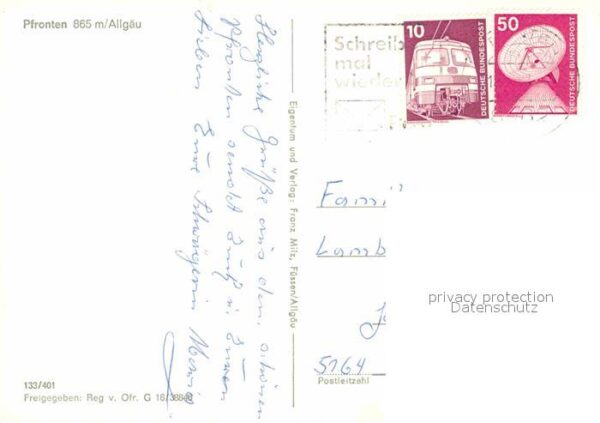 Pfronten 865 m/Allgäu
Herzliche Grüße aus dem schönen
Pfronten sendet Euch u. Euren
Lieben Eure Schwägerin Maria
133/401
Freigegeben: Reg v. Ofr. G 16/
Eigentum und Verlag: Franz Milz, Füssen/Allgäu
Schreib
mal
wieder
10
DEUTSCHE BUNDESPOST
50
DEUTSCHE BUNDESPOST
Fami
Lamb
5164
Postleitzahl
privacy protection
Datenschutz